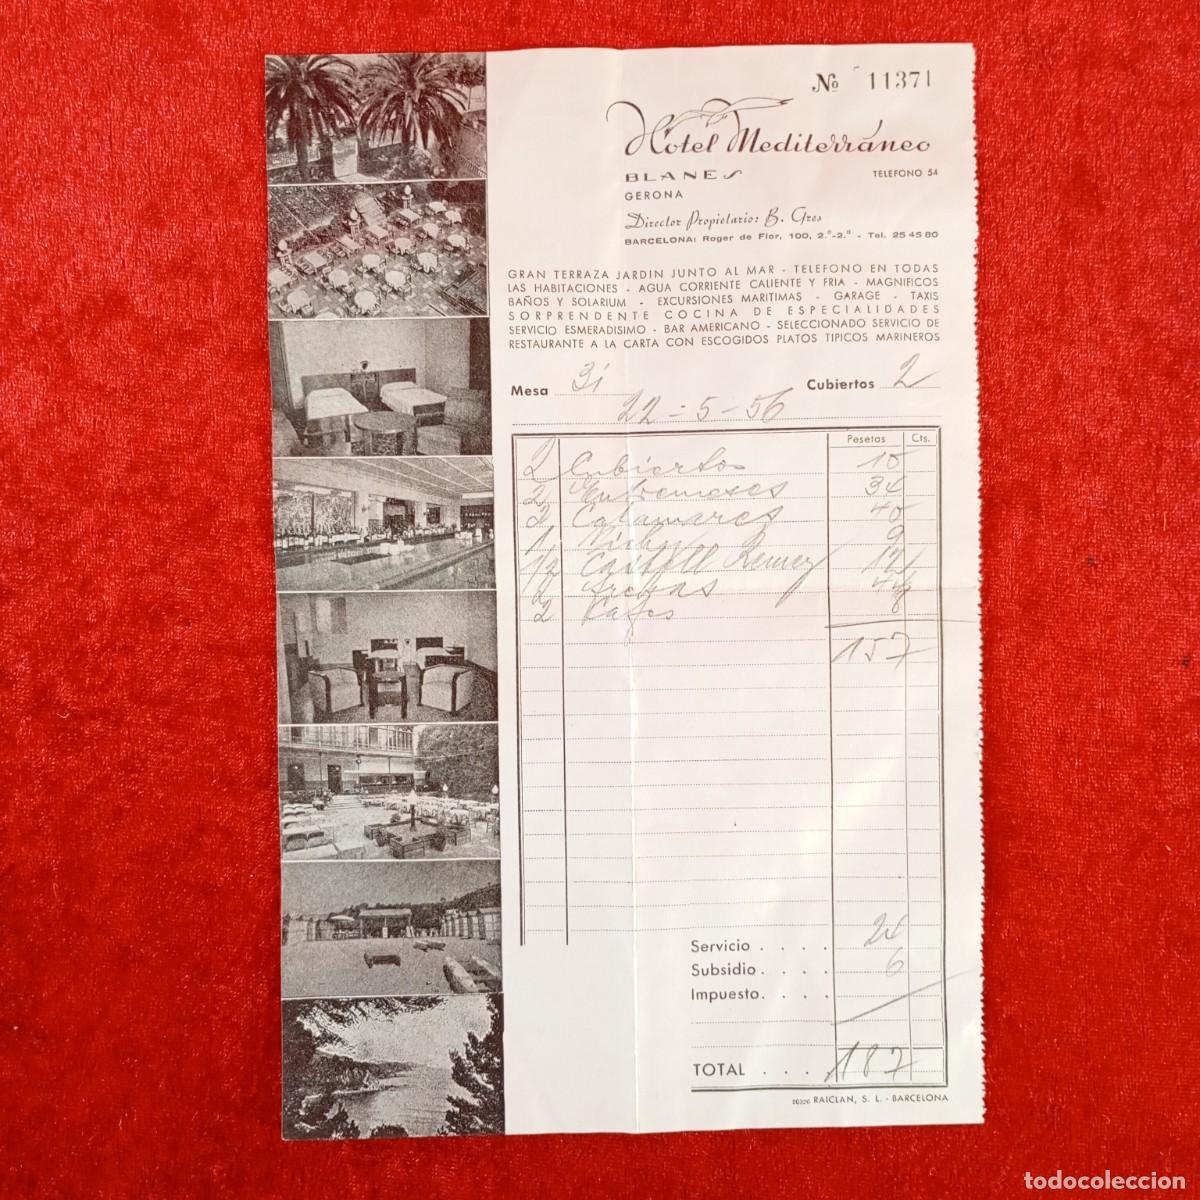 Nº 11371
Hotel Mediterráneo
BLANES
TELEFONO 54
GERONA
Director Propietario: B. Gres
BARCELONA: Roger de Flor, 100, 2.º-2.ª - Tel. 25 45 80
GRAN TERRAZA JARDIN JUNTO AL MAR - TELEFONO EN TODAS
LAS HABITACIONES - AGUA CORRIENTE CALIENTE Y FRIA - MAGNIFICOS
BAÑOS Y SOLARIUM - EXCURSIONES MARITIMAS - GARAGE - TAXIS
SORPRENDENTE COCINA DE ESPECIALIDADES
SERVICIO ESMERADISIMO - BAR AMERICANO - SELECCIONADO SERVICIO DE
RESTAURANTE A LA CARTA CON ESCOGIDOS PLATOS TIPICOS MARINEROS
Mesa 31 Cubiertos 2
22-5-56
Pesetas Cts.
2 Cubiertos 10
2 Entremeses 34
2 Calamares 40
1 Vichy 9
1/2 Castell Remey 12
2 44
2 Cafes 8
157
Servicio . . . . 24
Subsidio . . . . 6
Impuesto. . . .
TOTAL . . . 187
RAICLAN, S. L. - BARCELONA
todocoleccion